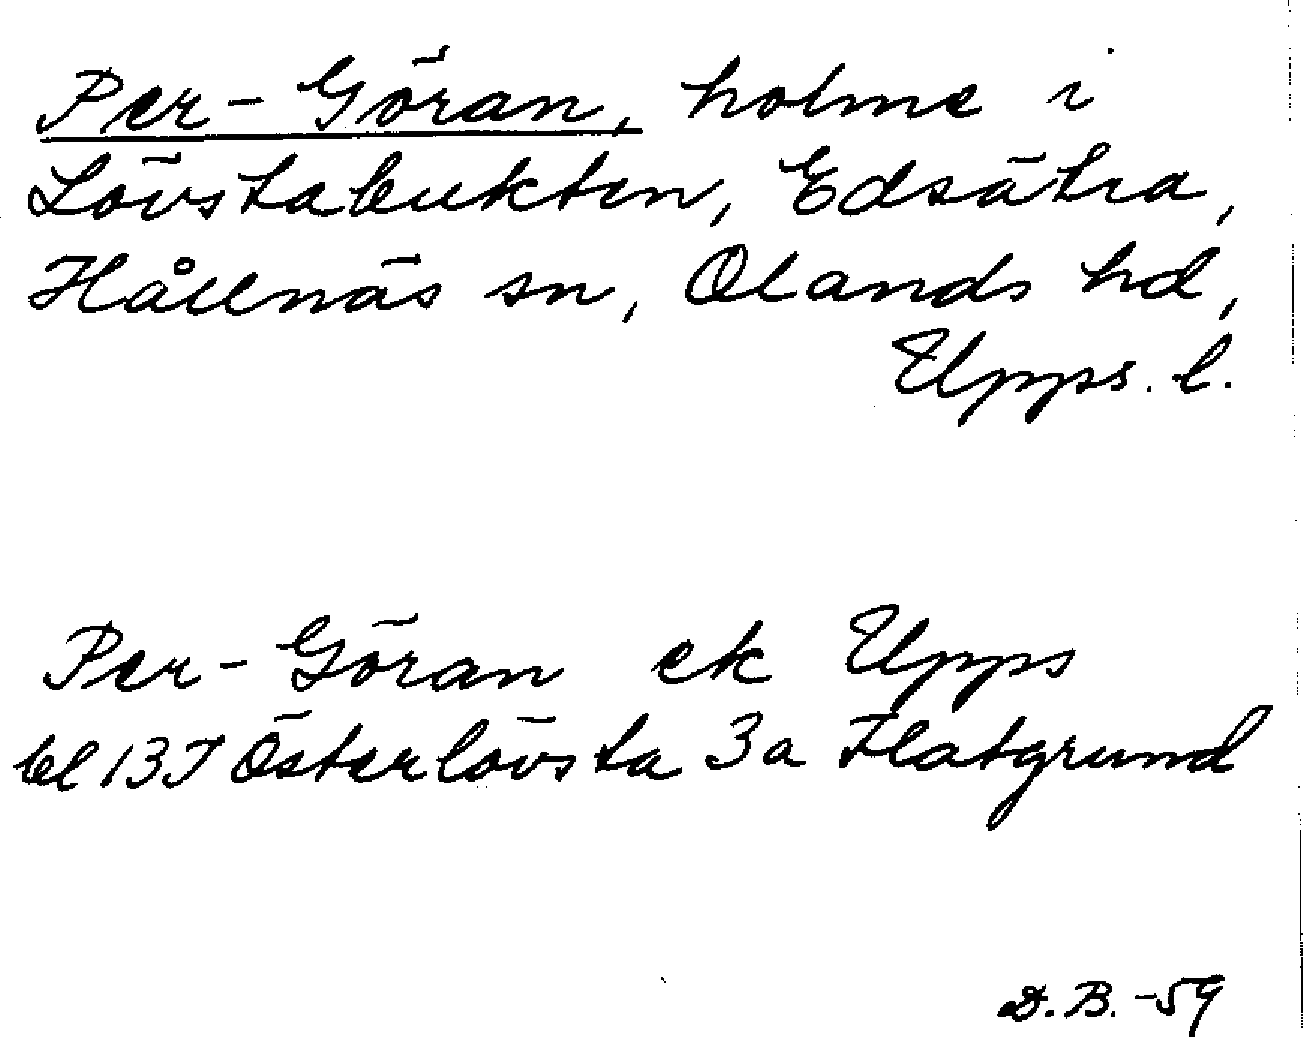 Per-Göran, holme i
Lövstabukten, Edsätra,
Hållnäs sn, Olands hd,
Upps. l.
Per-Göran ek Upps
bl 137 Österlövsta 3a Flatgrund
D.B.-59